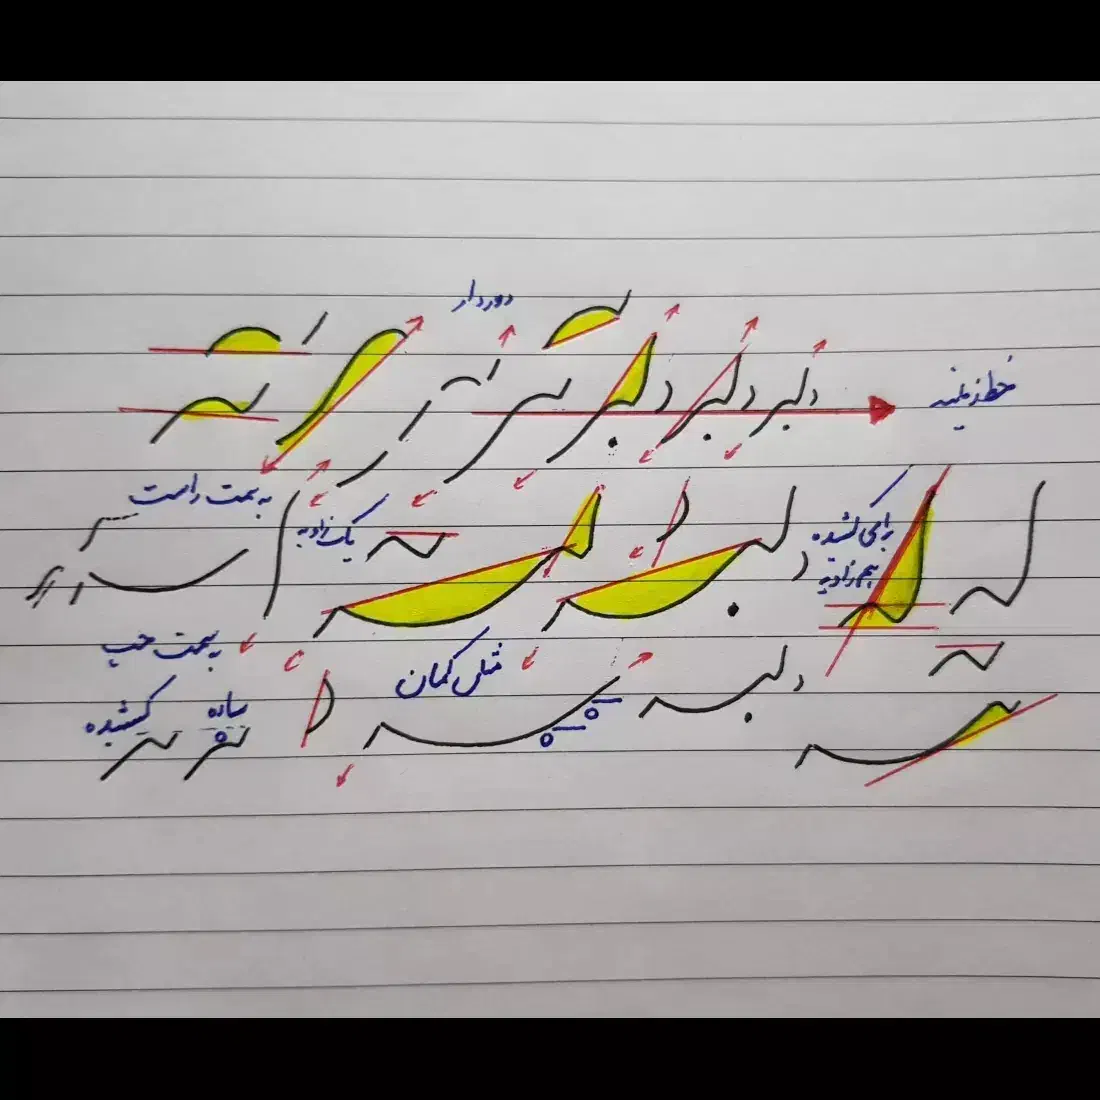 دوردار
خط زمینه
دلبر دلبر دلبر
به سمت راست
یک زاویه
برای کشیده
هم زاویه
دلبر
به سمت چپ
مثل کمان
دلبر
ساده
کشیده